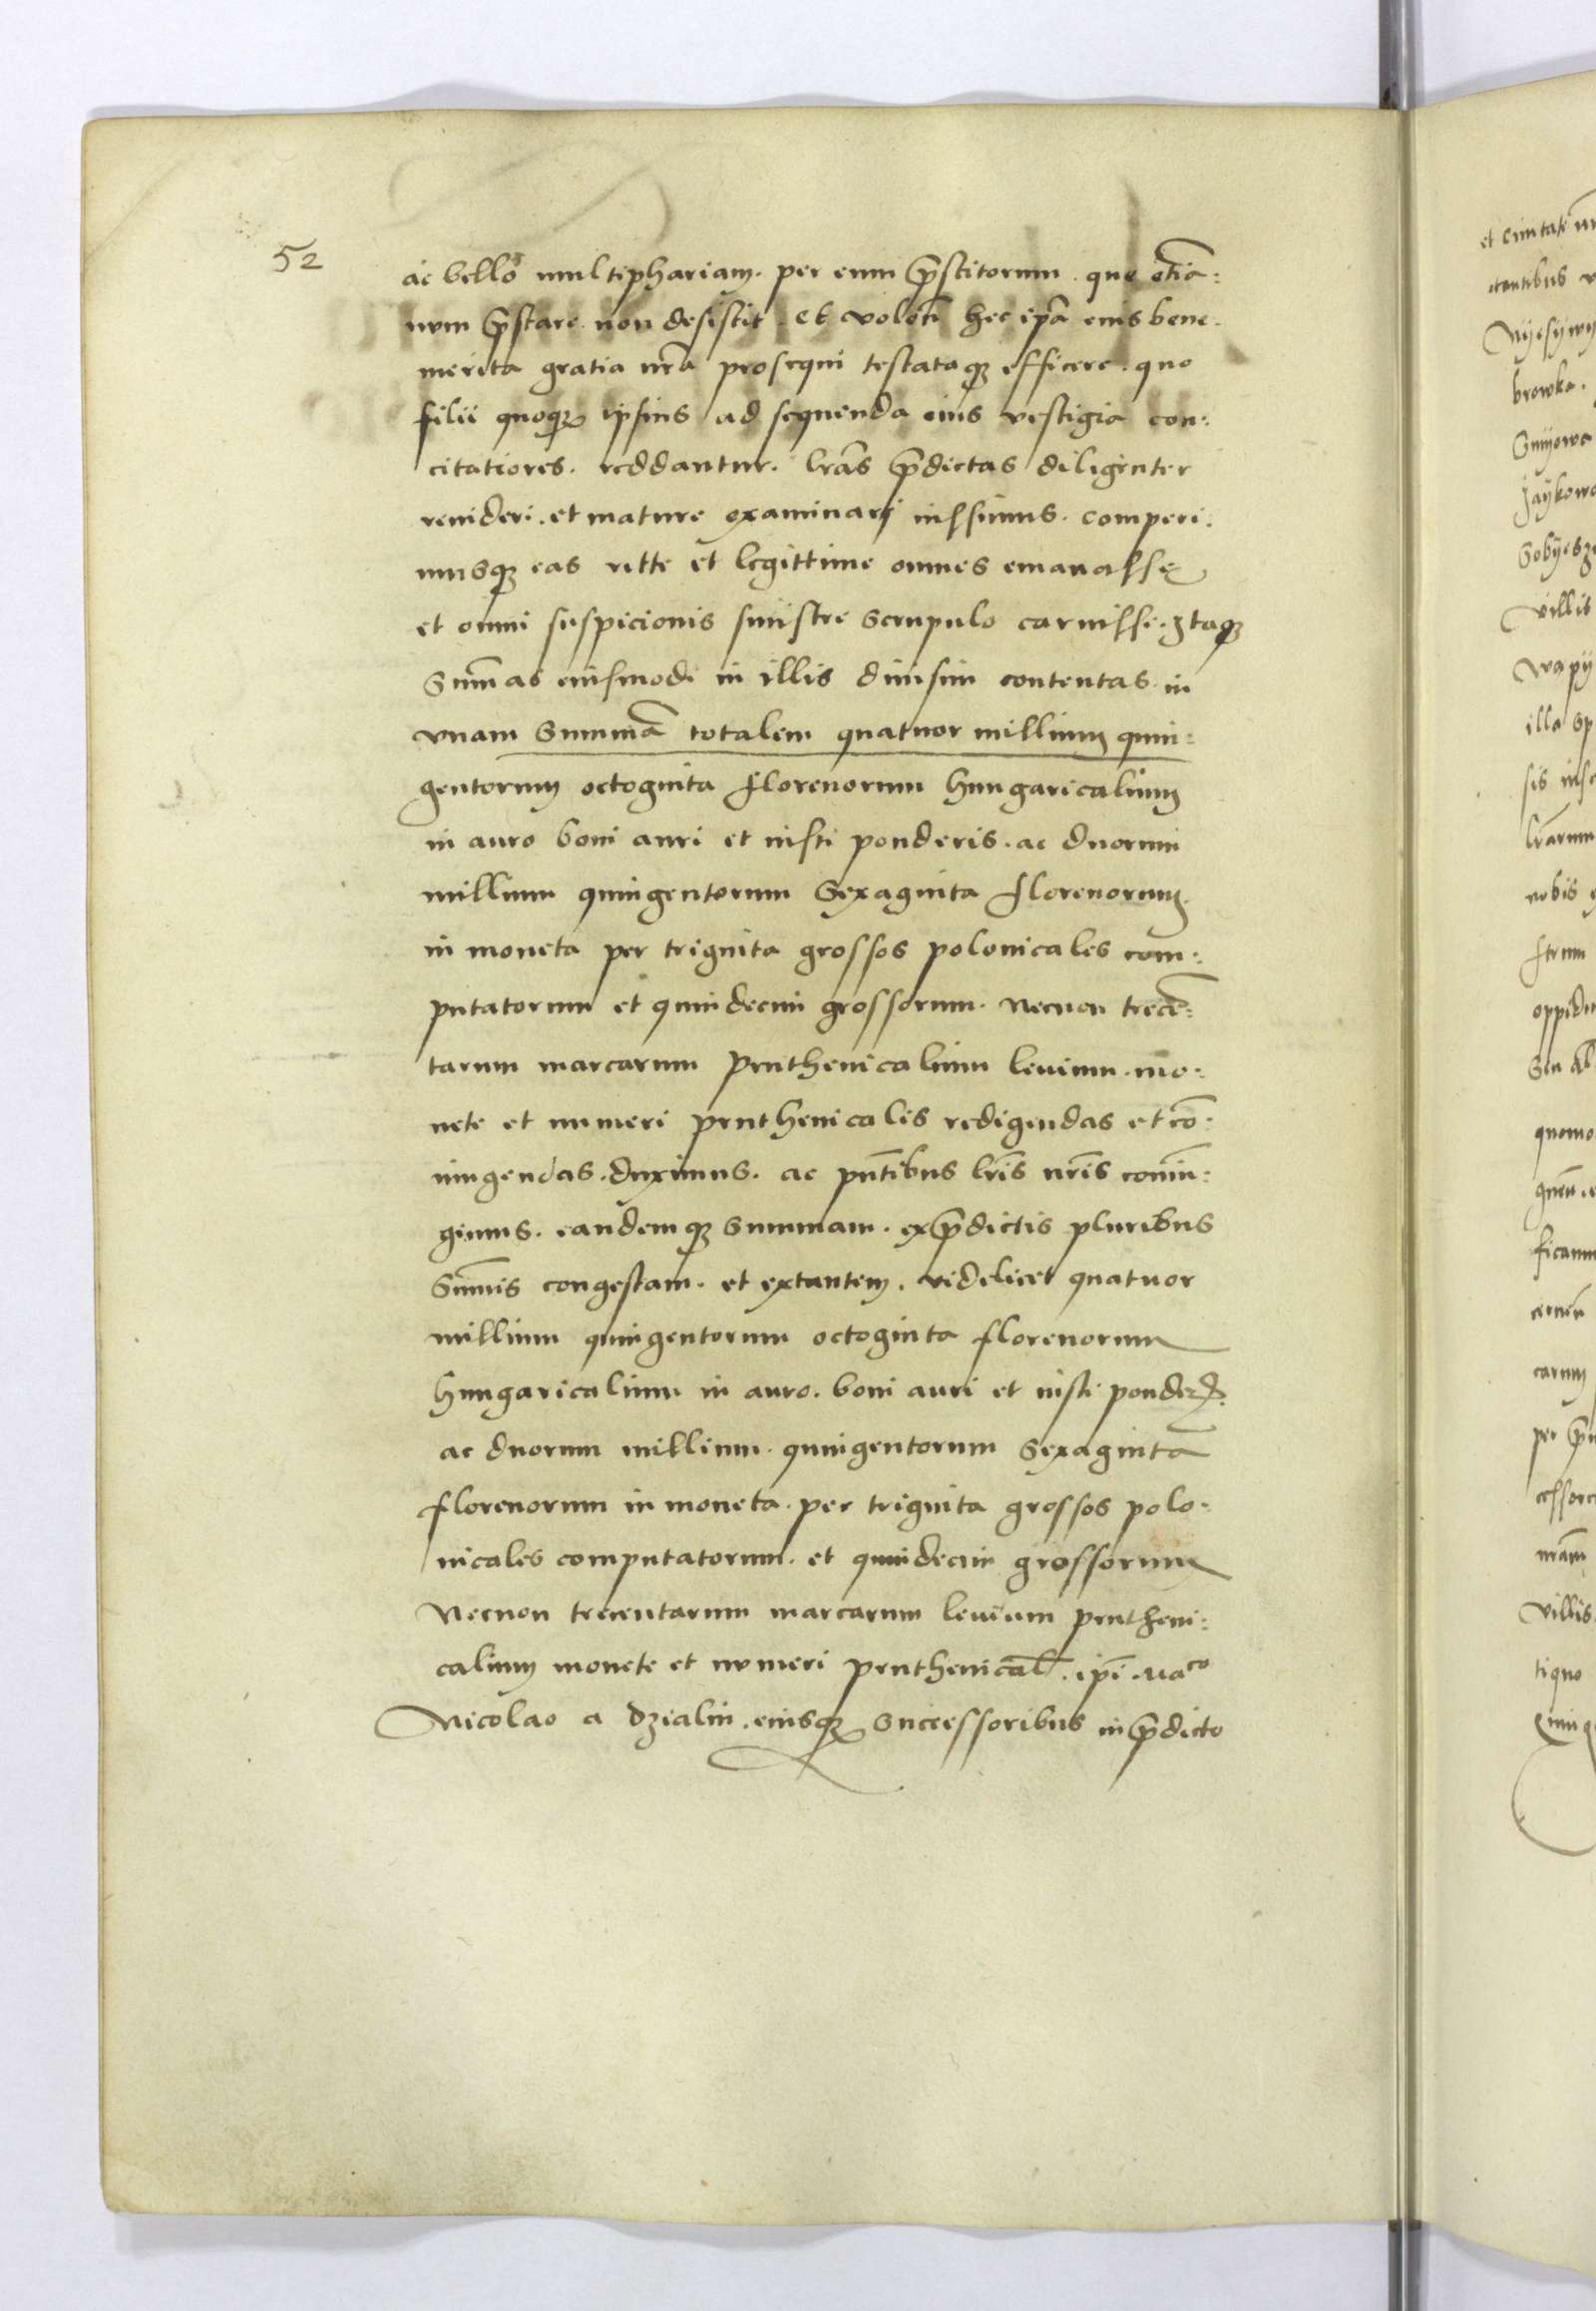 52
ac bello multiphariam. per eum p̄stitorum. que etiā:
num p̄stare non desistit. et volen̄ hec ip̄a eius bene-
merita gratia n̄ra prosequi testataqꝫ efficere. quo
filii quoqꝫ ipsius ad sequenda eius vestigia con:
citatiores. reddantur. l̄ras p̄dictas diligenter
reuideri. et mature examinarj iussimus. comperi:
musqꝫ eas ritte et legittime omnes emanasse
et omni suspicionis sinistre scrupulo caruisse. Itaqꝫ
Sum̄as eiusmodi in illis diuisim contentas in
vnam Summā totalem quatuor millium quin:
gentorum octoginta florenorum hungaricalium
in auro boni auri et iusti ponderis. ac duorum
millium quingentorum Sexaginta florenorum
in moneta per triginta grossos polonicales com:
putatorum et quindecim grossorum. Necnon trecē:
tarum marcarum pruthenicalium leuium. mo:
nete et numeri pruthenicalis redigendas et cō:
iungendas. duximus. ac pn̄tibus l̄ris n̄ris coniun:
gimus. eandemqꝫ summam. ex p̄dictis pluribus
Sum̄is congestam. et extantem. videlicet quatuor
millium quingentorum octoginta florenorum
hungaricalium in auro. boni auri et iusti ponderꝭ.
ac duorum millium. quingentorum Sexaginta
florenorum in moneta. per triginta grossos polo-
nicales computatorum. et quindecim grossorum
Necnon trecentarum marcarum leuium prutheni:
calium monete et numeri pruthenical̄. ip̄i. Maco
Nicolao a dzialin. eiusqꝫ Successoribus in p̄dicto
et ciuitate
browka.
villis
wapy
illa
sis
l̄rarum
nobis
oppidu
quomo
carum
per
villis
tiquo